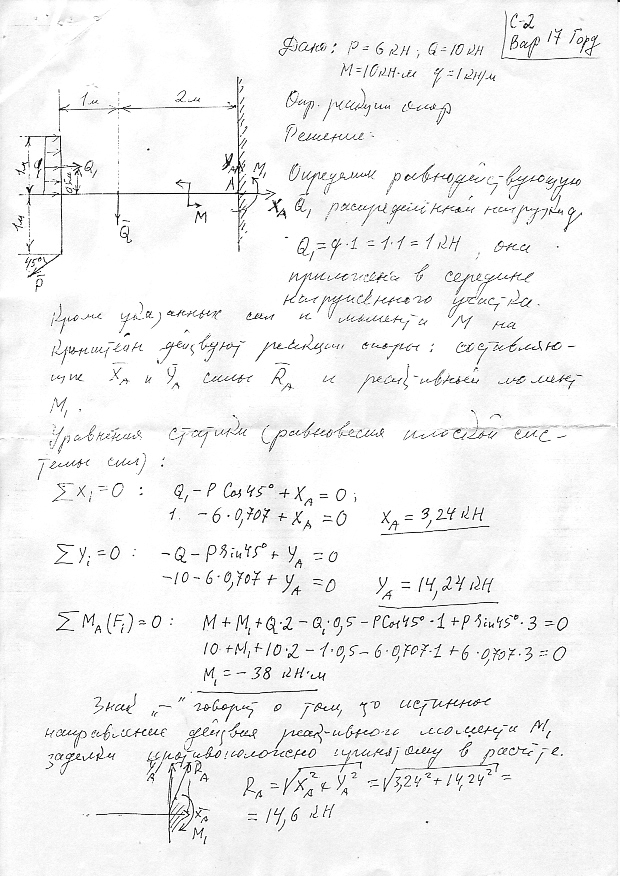 С-2
Вар 17 Горд
Дано: P = 6 кН; Q = 10 кН
M = 10 кН·м q = 1 кН/м
1м 2м
Опр. реакции опор
Решение:
1м q Q₁ 0,5м
Y_A M₁
A X_A
1м Q̅ M
45° P̅
Определим равнодействующую
Q̅₁ распределённой нагрузки q
Q₁ = q·1 = 1·1 = 1 кН, она
приложена в середине
нагруженного участка.
Кроме указанных сил и момента M на
кронштейн действуют реакции опоры: составляю-
щие X̅_A и Y̅_A силы R̅_A и реактивный момент
M₁.
Уравнения статики (равновесия плоской сис-
темы сил):
∑Xᵢ=0 : Q₁ - P Cos45° + X_A = 0;
1 - 6·0,707 + X_A = 0 X_A = 3,24 кН
∑Yᵢ=0 : -Q - P Sin45° + Y_A = 0
-10 - 6·0,707 + Y_A = 0 Y_A = 14,24 кН
∑M_A(Fᵢ)=0 : M + M₁ + Q·2 - Q₁·0,5 - P Cos45°·1 + P Sin45°·3 = 0
10 + M₁ + 10·2 - 1·0,5 - 6·0,707·1 + 6·0,707·3 = 0
M₁ = - 38 кН·м
Знак „-" говорит о том, что истинное
направление действия реактивного момента M₁
заделки противоположно принятому в расчёте.
Y̅_A R̅_A R_A = √X_A² + Y_A² = √3,24² + 14,24² =
X̅_A = 14,6 кН
M₁